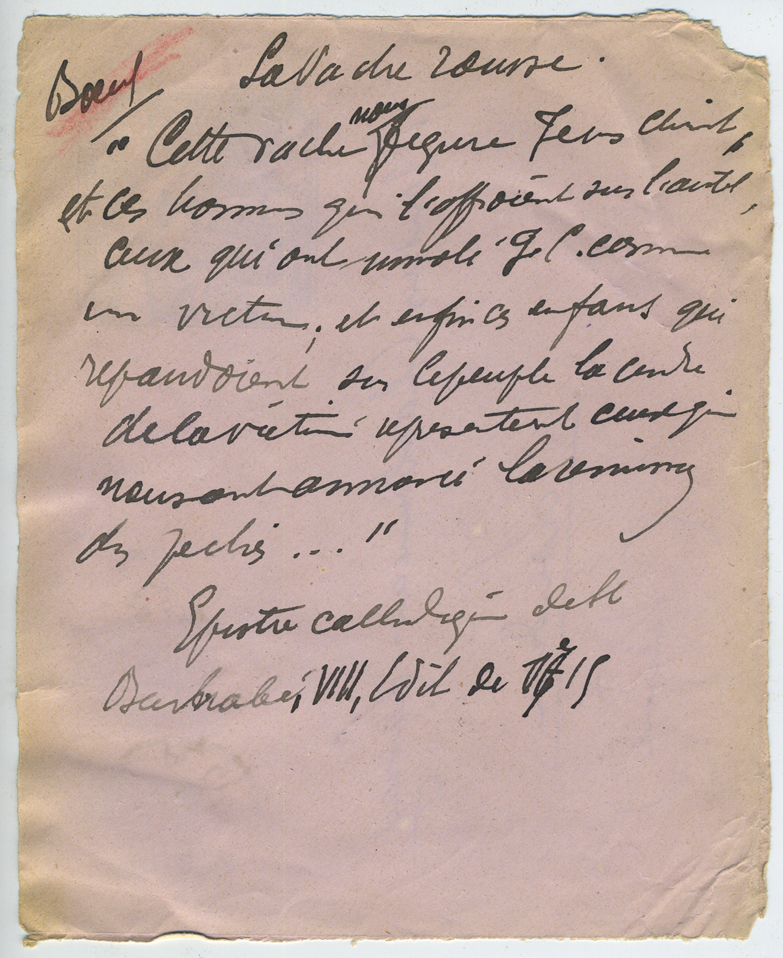 Bœuf
La Vache rousse.
" Cette vache nous figure Jesus christ,
et ces hommes qui l'offroient sur l'autel,
ceux qui ont immolé J. C. comme
un victime, et enfin ces enfans qui
repandoient sur le peuple la cendre
de la victime representent ceux qui
nous ont annoncé la remission
des pechés ... "
Epistre catholique de St
Barnabé, VIII, Edit de